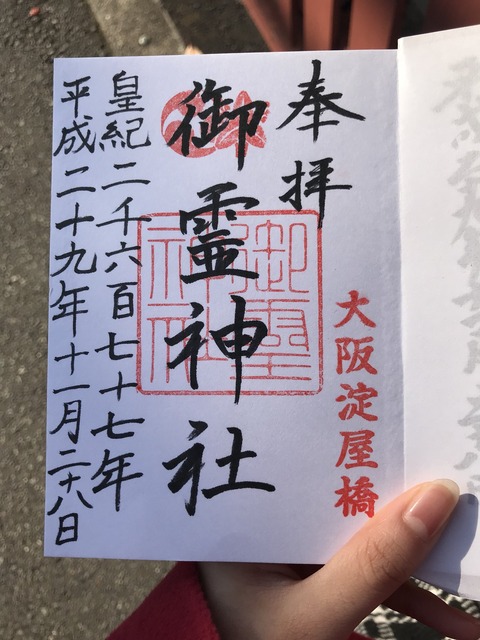 奉拝
大阪淀屋橋
御霊神社
御霊神社
皇紀二千六百七十七年
平成二十九年十一月二十八日